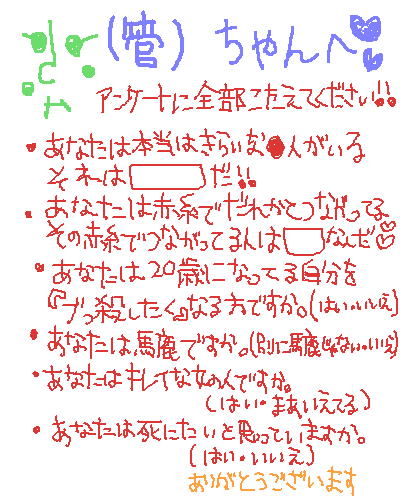 (管)ちゃんへ
アンケートに全部こたえてください!!
・あなたは本当はきらいな人がいる
それは　　　　だ!!
・あなたは赤糸でだれかとつながってる
その赤糸でつながってるまんは　　　なんだ♡
・あなたは20歳になってる自分を
『ブっ殺したく』なる方ですか。(はい・いいえ)
・あなたは馬鹿ですか。(別に馬鹿じゃない・いいえ)
・あなたはキレイな女の人ですか。
(はい・まあいえてる)
・あなたは死にたいと思っていますか。
(はい・いいえ)
ありがとうございます